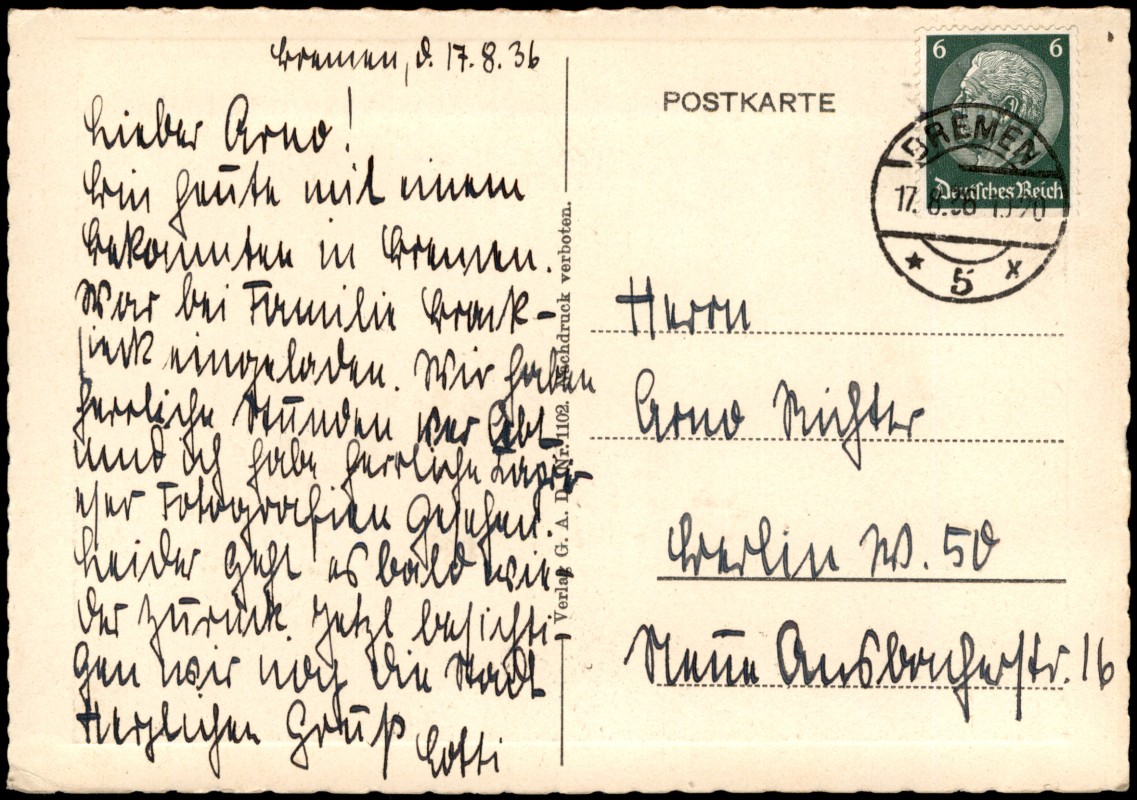 Bremen, d. 17.8.36
Lieber Arno!
Bin heute mit einem
Bekannten in Bremen.
War bei Familie Brack-
sieck eingeladen. Wir haben
herrliche Stunden
und ich habe herrliche
Fotografien gesehen.
Leider geht es bald wie-
der zurück. Jetzt besichti-
gen wir noch die Stadt
Herzlichen Gruß
Lotti
Verlag G. A. D. Nr. 1102. Nachdruck verboten.
POSTKARTE
6 6
Deutsches Reich
BREMEN
17.8.36
* 5 x
Herrn
Arno Richter
Berlin W. 50
Neue Ansbacherstr. 16